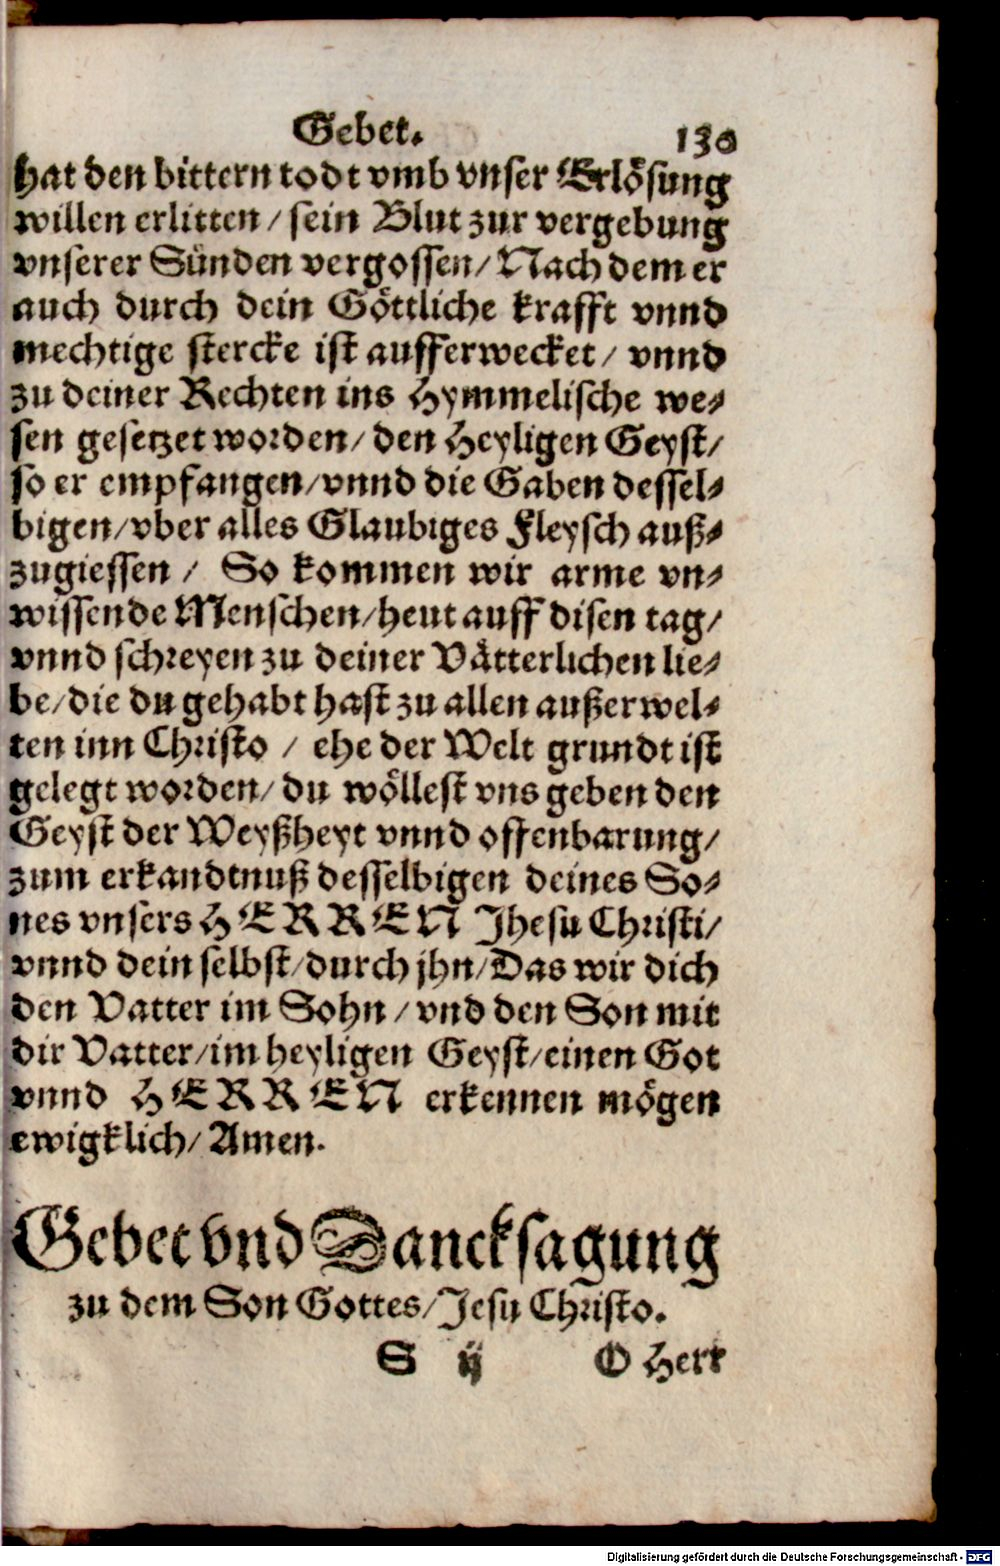 Gebet. 130
hat den bittern todt vmb vnser Erlösung
willen erlitten / sein Blut zur vergebung
vnserer Sünden vergossen / Nach dem er
auch durch dein Göttliche krafft vnnd
mechtige stercke ist aufferwecket / vnnd
zu deiner Rechten ins Hymmelische we-
sen gesetzet worden / den Heyligen Geyst /
so er empfangen / vnnd die Gaben dessel-
bigen / vber alles Glaubiges Fleysch auß-
zugiessen / So kommen wir arme vn-
wissende Menschen / heut auff disen tag /
vnnd schreyen zu deiner Vätterlichen lie-
be / die du gehabt hast zu allen außerwel-
ten inn Christo / ehe der Welt grundt ist
gelegt worden / du wöllest vns geben den
Geyst der Weyßheyt vnnd offenbarung /
zum erkandtnuß desselbigen deines So-
nes vnsers HERREN Jhesu Christi /
vnnd dein selbst / durch jhn / Das wir dich
den Vatter im Sohn / vnd den Son mit
dir Vatter / im heyligen Geyst / einen Got
vnnd HERREN erkennen mögen
ewigklich / Amen.
Gebet vnd Dancksagung
zu dem Son Gottes / Jesu Christo.
S ij O Herr
Digitalisierung gefördert durch die Deutsche Forschungsgemeinschaft - DFG